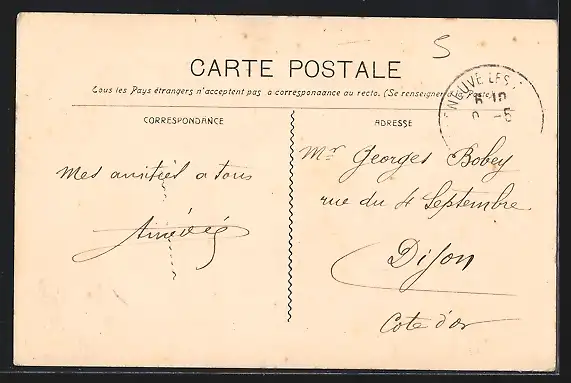 5
CARTE POSTALE
Tous les Pays étrangers n'acceptent pas a correspondance au recto. (Se renseigner à la Poste)
NEUVE LES
CORRESPONDANCE
ADRESSE
Mr Georges Bobey
rue du 4 Septembre
Dijon
Cote d'or
Mes amitiés a tous